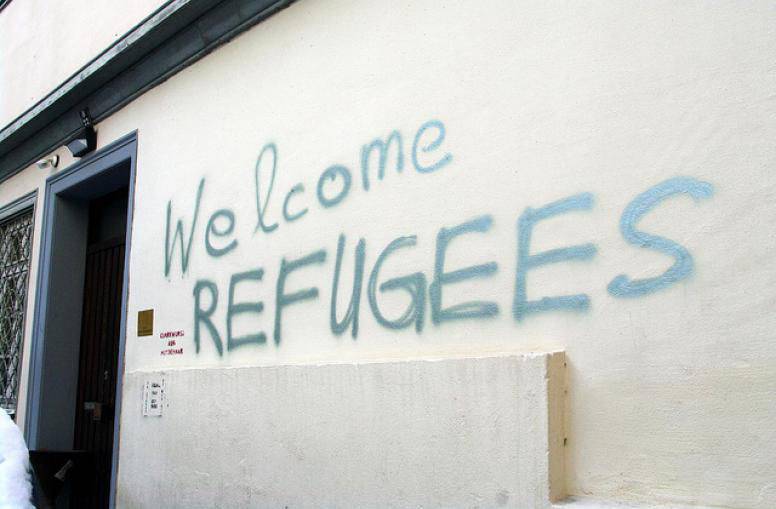 Welcome
REFUGEES